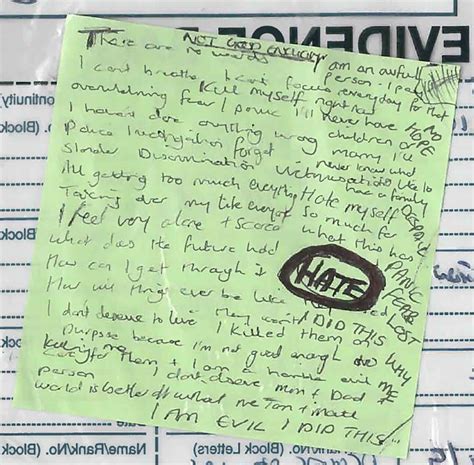 EVIDENC
NOT GOOD ENOUGH
There are no words
I am an awful person - I pay
I can't breathe I can't focus everyday for that
Kill myself right now
overwhelming fear / panic I'll never have
NO HOPE
I haven't done anything wrong children or marry I'll
Police investigation forget never know what
Slander Discrimination Victimisation like to have a family
All getting too much everything Hate myself
DESPAIR
Taking over my life everyday so much for
I feel very alone + scared what this has
PANIC
What does the future hold
HATE
FEAR
How can I get through it
LOST
How will things ever be like they used
I DID THIS
WHY ME
I don't deserve to live I killed them on
purpose because I'm not good enough to
care for them + I am a horrible evil
person I don't deserve mum + Dad +
world is better off without me Tom + Matt
I AM EVIL I DID THIS
ontinuity)
No. (Block
(Block
Name/Rank/No. (Block Letters)